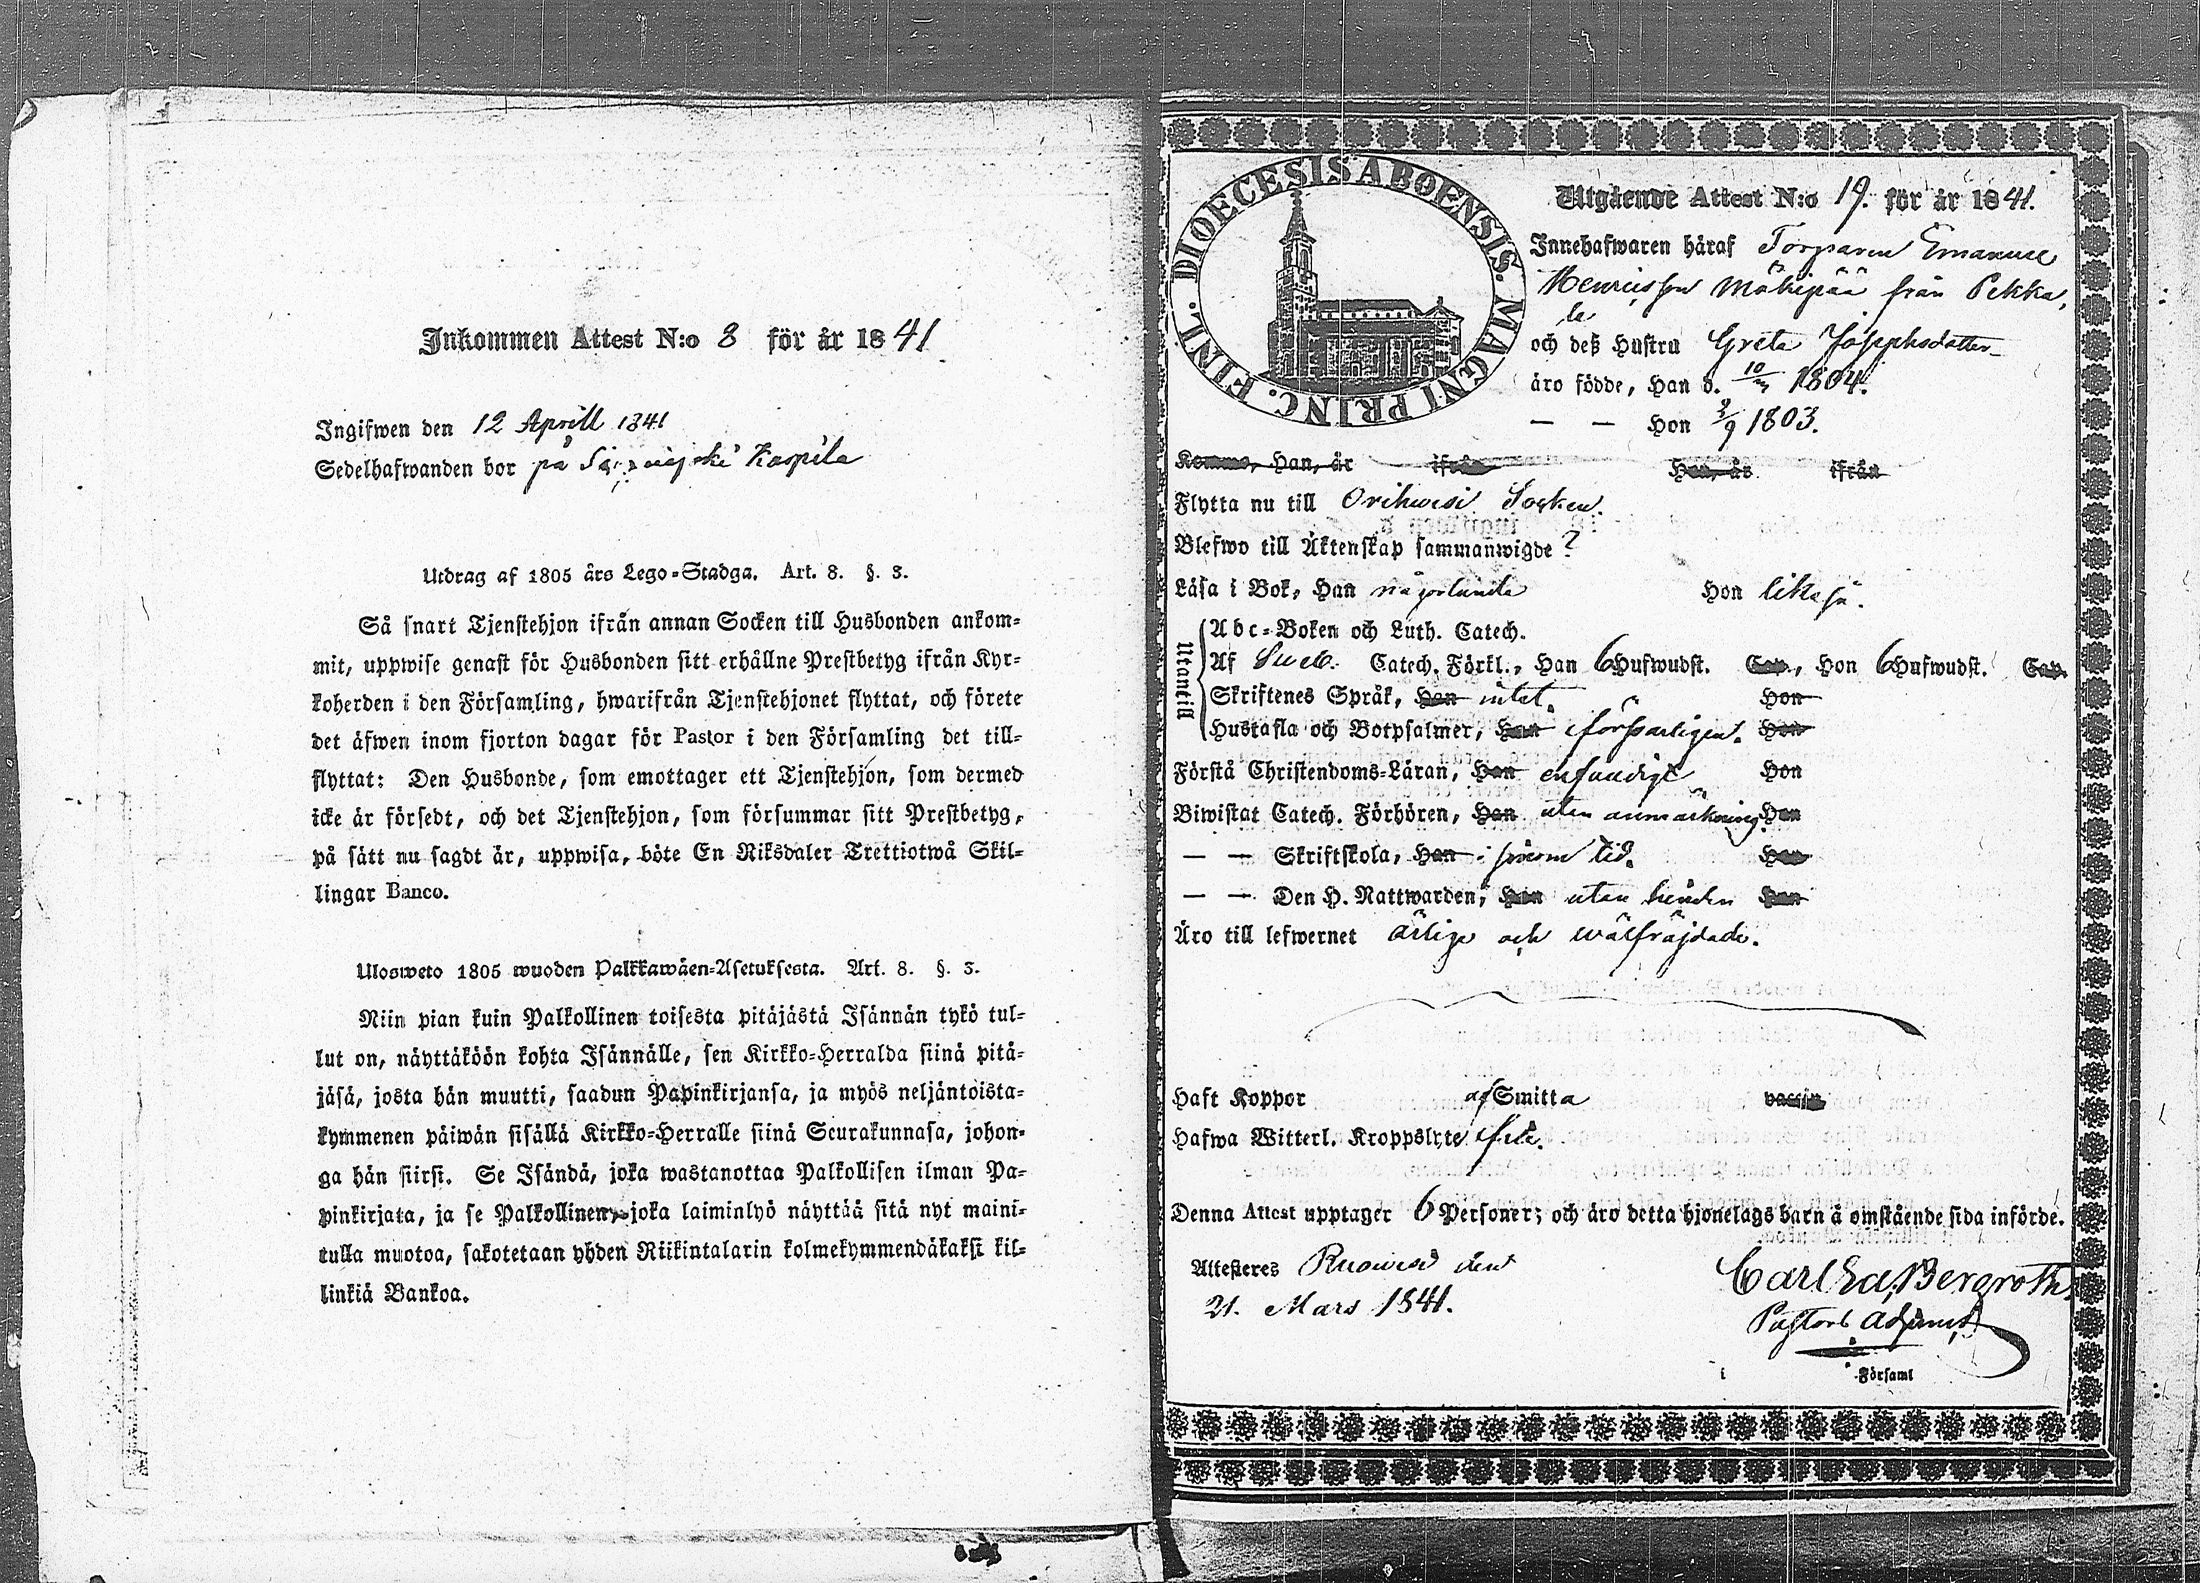 Inkommen Attest N:o 8 för år 1841
Ingifwen den 12 Aprill 1841
Sedelhafwanden bor på Kaspila
Utdrag af 1805 års Lego-Stadga. Art. 8. §. 3.
Så snart Tjenstehjon ifrån annan Socken till Husbonden ankom-
mit, uppwise genast för Husbonden sitt erhållne Prestbetyg ifrån Kyr-
koherden i den Församling, hwarifrån Tjenstehjonet flyttat, och förete
det äfwen inom fjorton dagar för Pastor i den Församling det till-
flyttat: Den Husbonde, som emottager ett Tjenstehjon, som dermed
icke är försedt, och det Tjenstehjon, som försummar sitt Prestbetyg,
på sätt nu sagdt är, uppwisa, böte En Riksdaler Trettiotwå Skil-
lingar Banco.
Ulosweto 1805 wuoden Palkkawäen-Asetuksesta. Art. 8. §. 3.
Niin pian kuin Palkollinen toisesta pitäjästä Isännän tykö tul-
lut on, näyttäköön kohta Isännälle, sen Kirkko-Herralda siinä pitä-
jäsä, josta hän muutti, saadun Papinkirjansa, ja myös neljäntoista-
kymmenen päiwän sisällä Kirkko-Herralle siinä Seurakunnasa, johon-
ga hän siirsi. Se Isändä, joka wastanottaa Palkollisen ilman Pa-
pinkirjata, ja se Palkollinen, joka laiminlyö näyttää sitä nyt maini-
tulla muotoa, sakotetaan yhden Riikintalarin kolmekymmendäkaksi kil-
linkiä Bankoa.
DIOECESIS ABOENSIS. MAGNI PRINC. FINL.
Utgående Attest N:o 19. för år 1841.
Innehafwaren häraf Torparen Emanuel
Henricsson Mäkipää från Pekka,
la
och deß Hustru Greta Josephsdotter
äro födde, Han d. 10/3 1804.
— — Hon 3/9 1803.
Komme, Han, år ifrån Hon, år ifrån
Flytta nu till Orihwesi Socken.
Blefwo till Äktenskap sammanwigde ?
Läsa i Bok, Han någorlunda Hon lika så.
Utantill
Abc-Boken och Luth. Catech.
Af Sweb. Catech. Förkl., Han 6 Hufwudst. Cap., Hon 6 Hufwudst. Cap.
Skriftenes Språk, Han intet. Hon
Hustafla och Botpsalmer, Han försvarligen. Hon
Förstå Christendoms-Läran, Han enfaldigt Hon
Biwistat Catech. Förhören, Han utan anmärkning. Hon
— — Skriftskola, Han i sinom tid. Hon
— — Den H. Nattwarden, Han utan hinder Hon
Äro till lefwernet ärlige och wälfräjdade.
Haft Koppor af Smitta vaccin
Hafwa Witterl. Kroppslyte
Denna Attest upptager 6 Personer; och äro detta hjonelags barn å omstående sida införde.
Attesteres Ruowesi den
21. Mars 1841.
Carl Ed. Bergroth.
Pastors Adjunct
i Församl